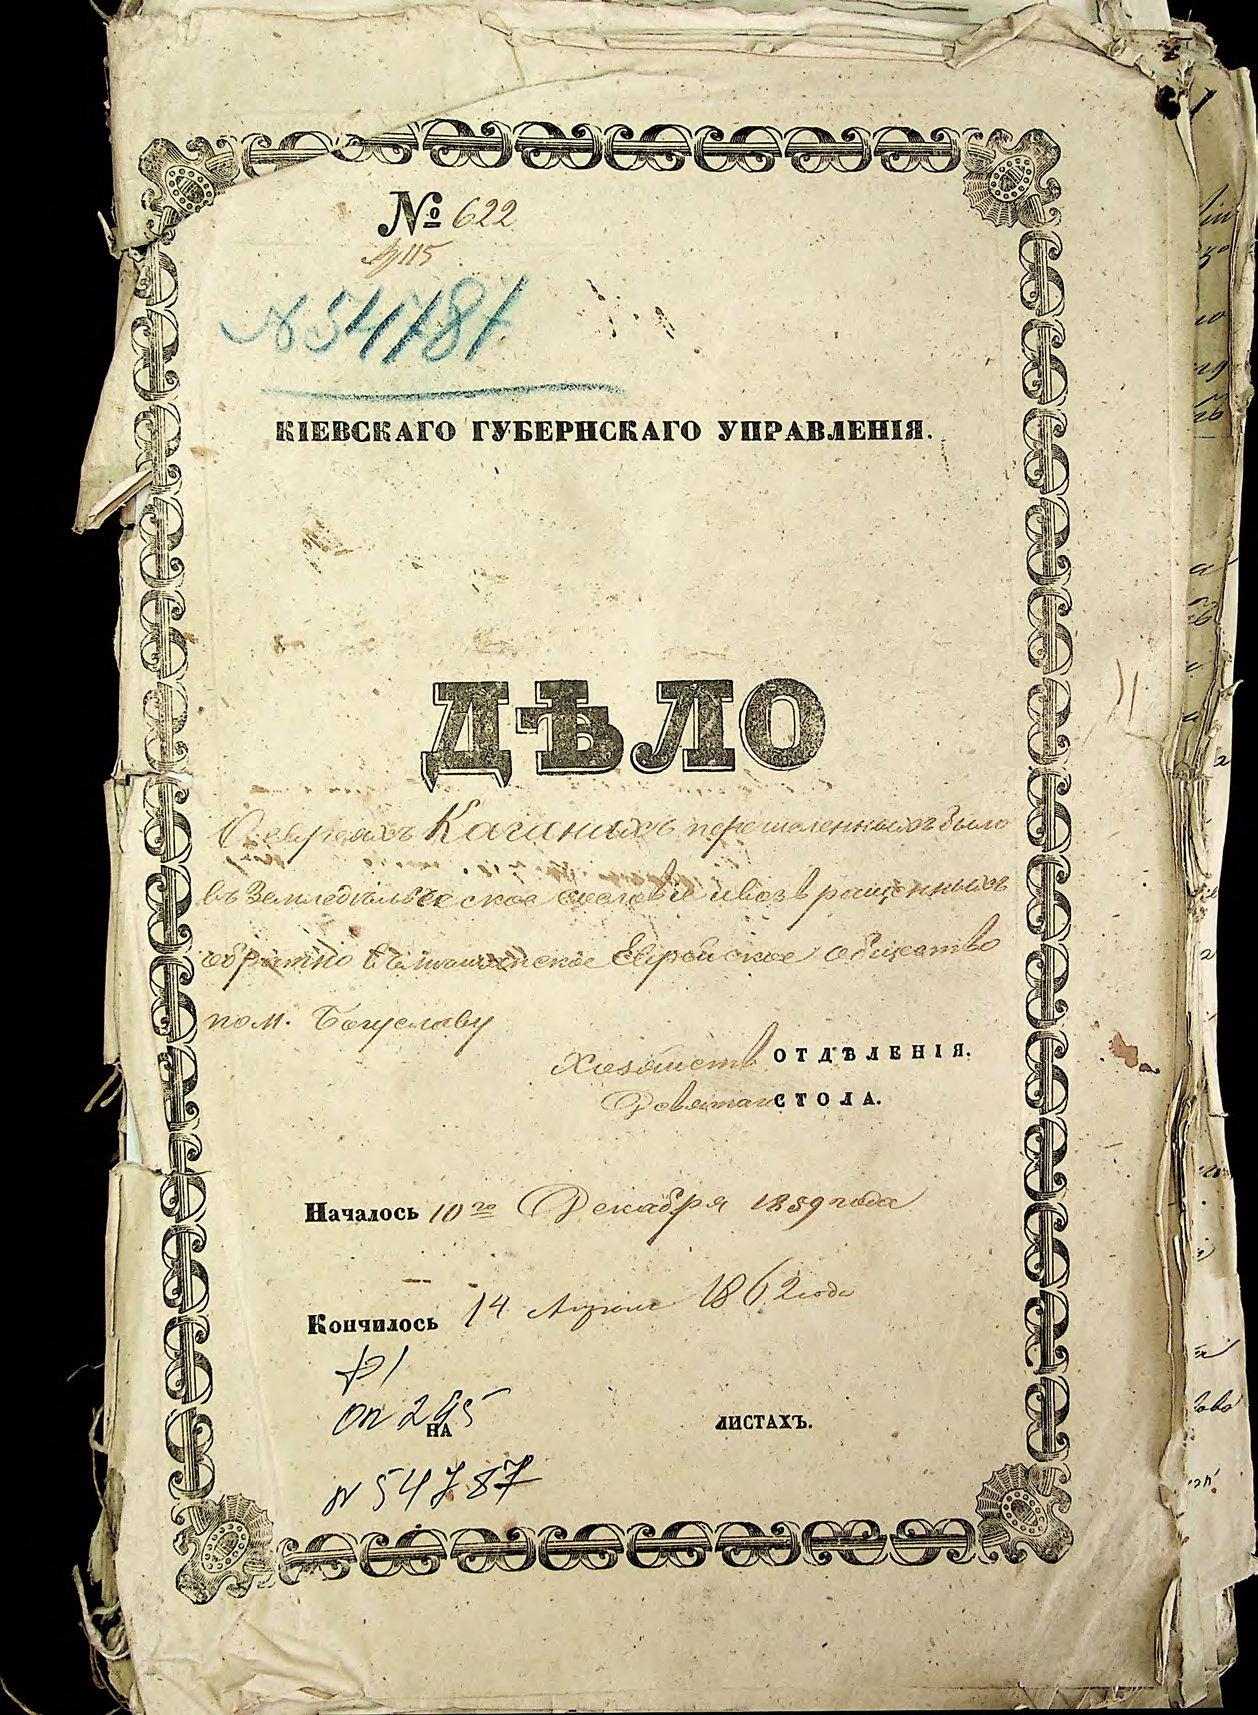 № 622
№ 54787
КІЕВСКАГО ГУБЕРНСКАГО УПРАВЛЕНІЯ.
ДѢЛО
О евреяхъ Каганихъ перечисленныхъ было
въ Земледѣльческое сословіе и возвращенныхъ
обратно въ мѣщанское Еврейское общество
по м. Богуславу
Хозяйств ОТДѢЛЕНІЯ.
Девятаго СТОЛА.
Началось 10го Декабря 1859 года
Кончилось 14 Апреля 1862 года
ф 1
оп 295
НА ЛИСТАХЪ.
№ 54787